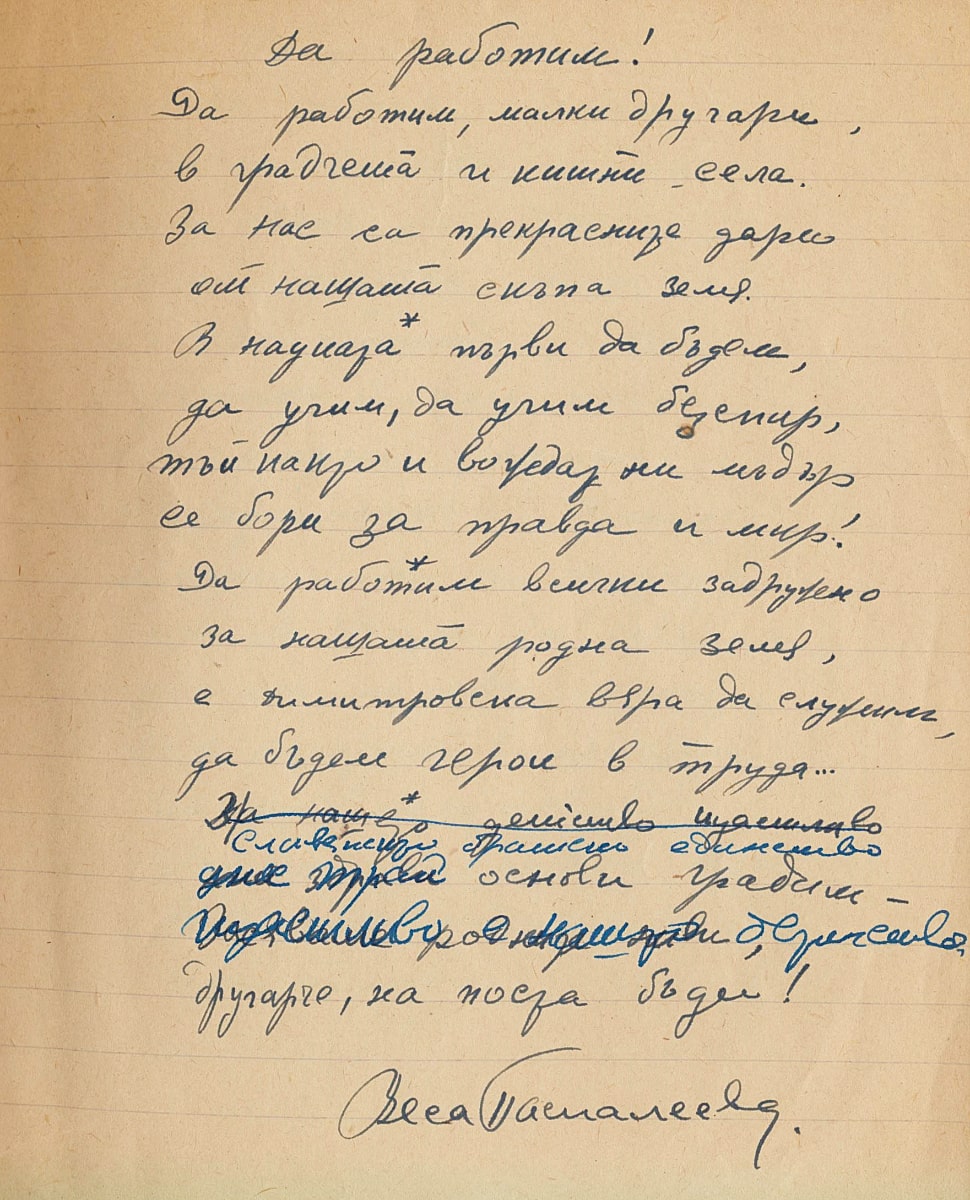 Да работим!
Да работим, малки другари,
в градчета и китни села.
За нас са прекрасните дари
от нашата скъпа земя.
*
В науката първи да бъдем,
да учим, да учим безспир,
тъй както и вождът ни мъдър
се бори за правда и мир!
*
Да работим всички задружно
за нашата родна земя,
с димитровска вяра да служим,
да бъдем герои в труда...
*
За нашто детство щастливо
Славянско братско единство
основи градим –
Щастливо е нашто детство,
другарче, на поста бъди!
Веса Паспалеева.